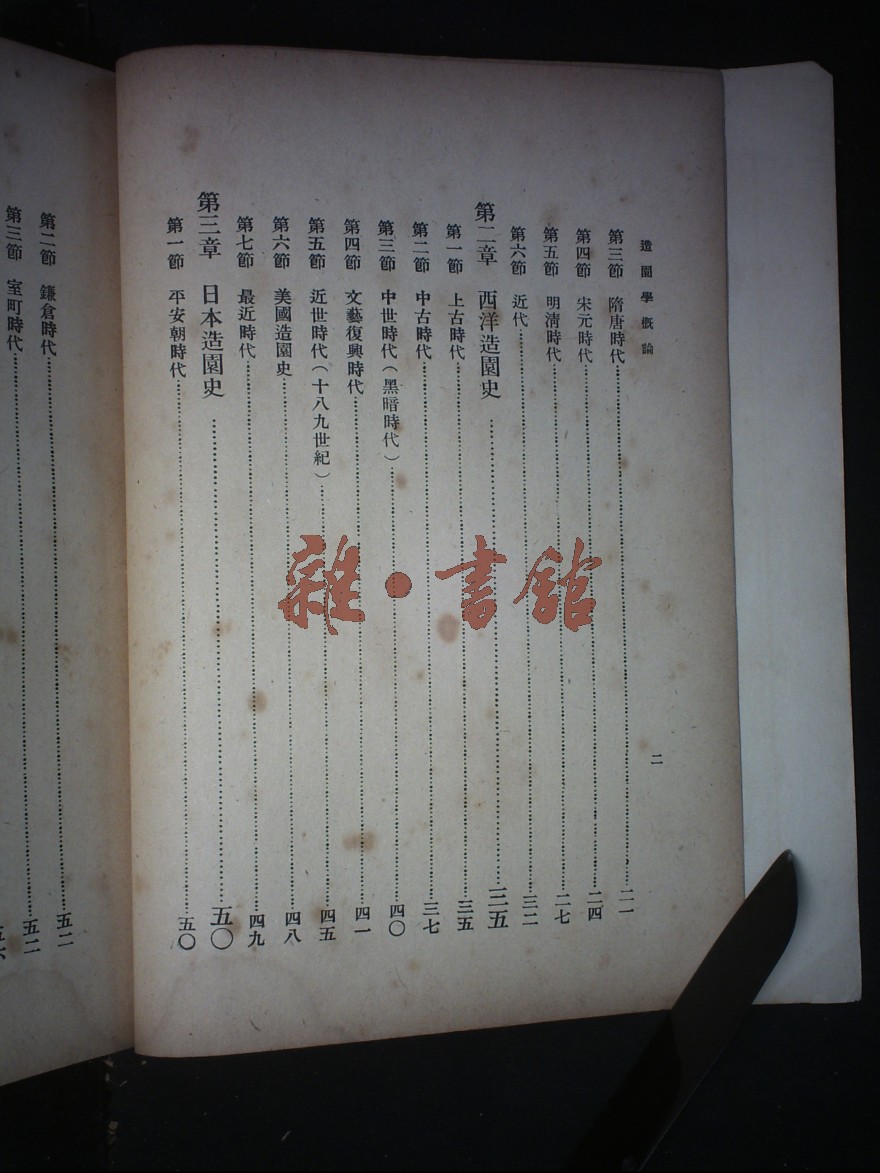 造園學概論
二
第三節 隋唐時代……二一
第四節 宋元時代……二四
第五節 明清時代……二七
第六節 近代……三二
第二章 西洋造園史……三五
第一節 上古時代……三五
第二節 中古時代……三七
第三節 中世時代（黑暗時代）……四〇
第四節 文藝復興時代……四一
第五節 近世時代（十八九世紀）……四五
第六節 美國造園史……四八
第七節 最近時代……四九
第三章 日本造園史……五〇
第一節 平安朝時代……五〇
第二節 鎌倉時代……五二
第三節 室町時代……五二
雜·書館